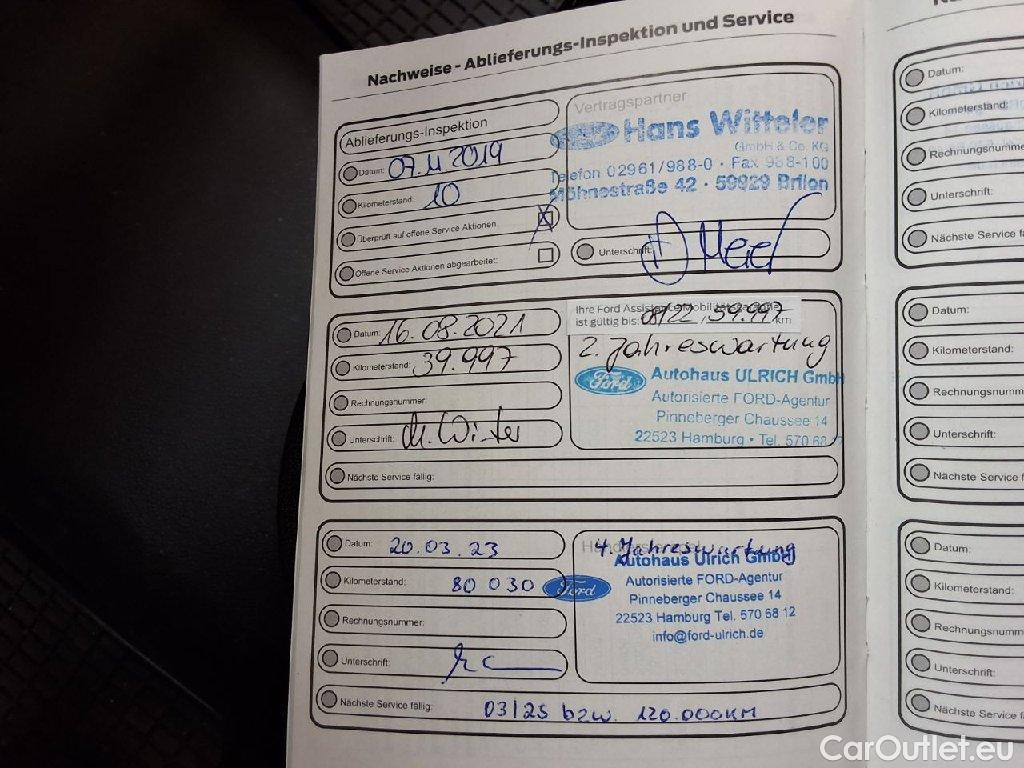 Nachweise - Ablieferungs-Inspektion und Service
Ablieferungs-Inspektion
Datum: 07.11 2019
Kilometerstand: 10
Überprüft auf offene Service Aktionen:
Offene Service Aktionen abgearbeitet:
Vertragspartner
Ford Hans Witteler
GmbH & Co. KG
Telefon 02961/988-0 · Fax 988-100
Möhnestraße 42 · 59929 Brilon
Unterschrift:
Datum: 16.08.2021
Kilometerstand: 39.997
Rechnungsnummer:
Unterschrift:
Nächste Service fällig:
Ihre Ford Assistance Mobilitätsgarantie
ist gültig bis: 08/22, 59.997 km
2. Jahreswartung
Ford Autohaus ULRICH GmbH
Autorisierte FORD-Agentur
Pinneberger Chaussee 14
22523 Hamburg · Tel. 570 68
Datum: 20.03.23
Kilometerstand: 80 030
Rechnungsnummer:
Unterschrift:
Nächste Service fällig: 03/25 bzw. 120.000KM
4. Jahreswartung
Autohaus Ulrich GmbH
Ford Autorisierte FORD-Agentur
Pinneberger Chaussee 14
22523 Hamburg Tel. 570 68 12
info@ford-ulrich.de
Datum:
Kilometerstand:
Rechnungsnumme
Unterschrift:
Nächste Service fäl
Datum:
Kilometerstand:
Rechnungsnumm
Unterschrift:
Nächste Service f
Datum:
Kilometerstand:
Rechnungsnumm
Unterschrift:
Nächste Service f
CarOutlet.eu